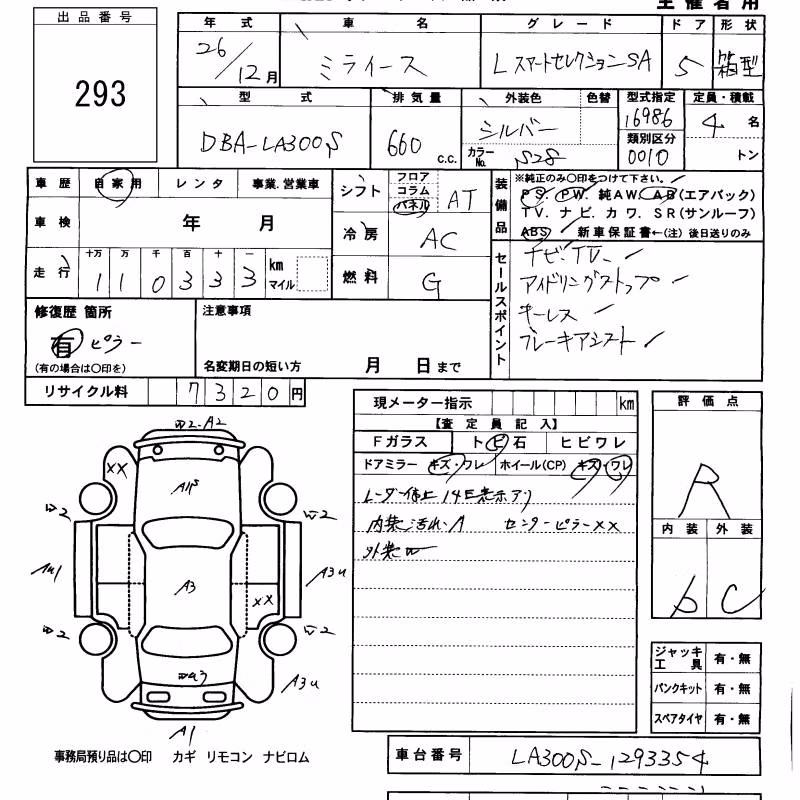 主催者用
出品番号
293
年式 車名 グレード ドア 形状
26/12月 ミライース LスマートセレクションSA 5 箱型
型式 排気量 外装色 色替 型式指定 定員・積載
DBA-LA300S 660 c.c. シルバー 16986 4名
カラーNo. S28 類別区分 0010 トン
車歴 自家用 レンタ 事業.営業車
シフト フロア コラム パネル AT
装備品
※純正のみ〇印をつけて下さい。
PS. PW. 純AW. AB(エアバック)
TV. ナビ. カワ. SR(サンルーフ)
ABS 新車保証書←(注)後日送りのみ
車検 年 月
冷房 AC
走行 十万 万 千 百 十 一
1 1 0 3 3 3 km マイル
燃料 G
セールスポイント
ナビ.TV.
アイドリングストップ
キーレス
ブレーキアシスト
修復歴 箇所
有 ピラー
(有の場合は〇印を)
注意事項
名変期日の短い方 月 日まで
リサイクル料 7320円
現メーター指示 km
【査定員記入】
Fガラス トビ石 ヒビワレ
ドアミラー キズ・ワレ ホイール(CP) キズ・ワレ
内装汚れA センターピラーXX
外装W
評価点
R
内装 外装
b C
W2-A2
XX
W2 W2
A3
A3u
XX
W2 W2
A3u
A1
ジャッキ工具 有・無
パンクキット 有・無
スペアタイヤ 有・無
事務局預り品は〇印 カギ リモコン ナビロム
車台番号 LA300S-1293354